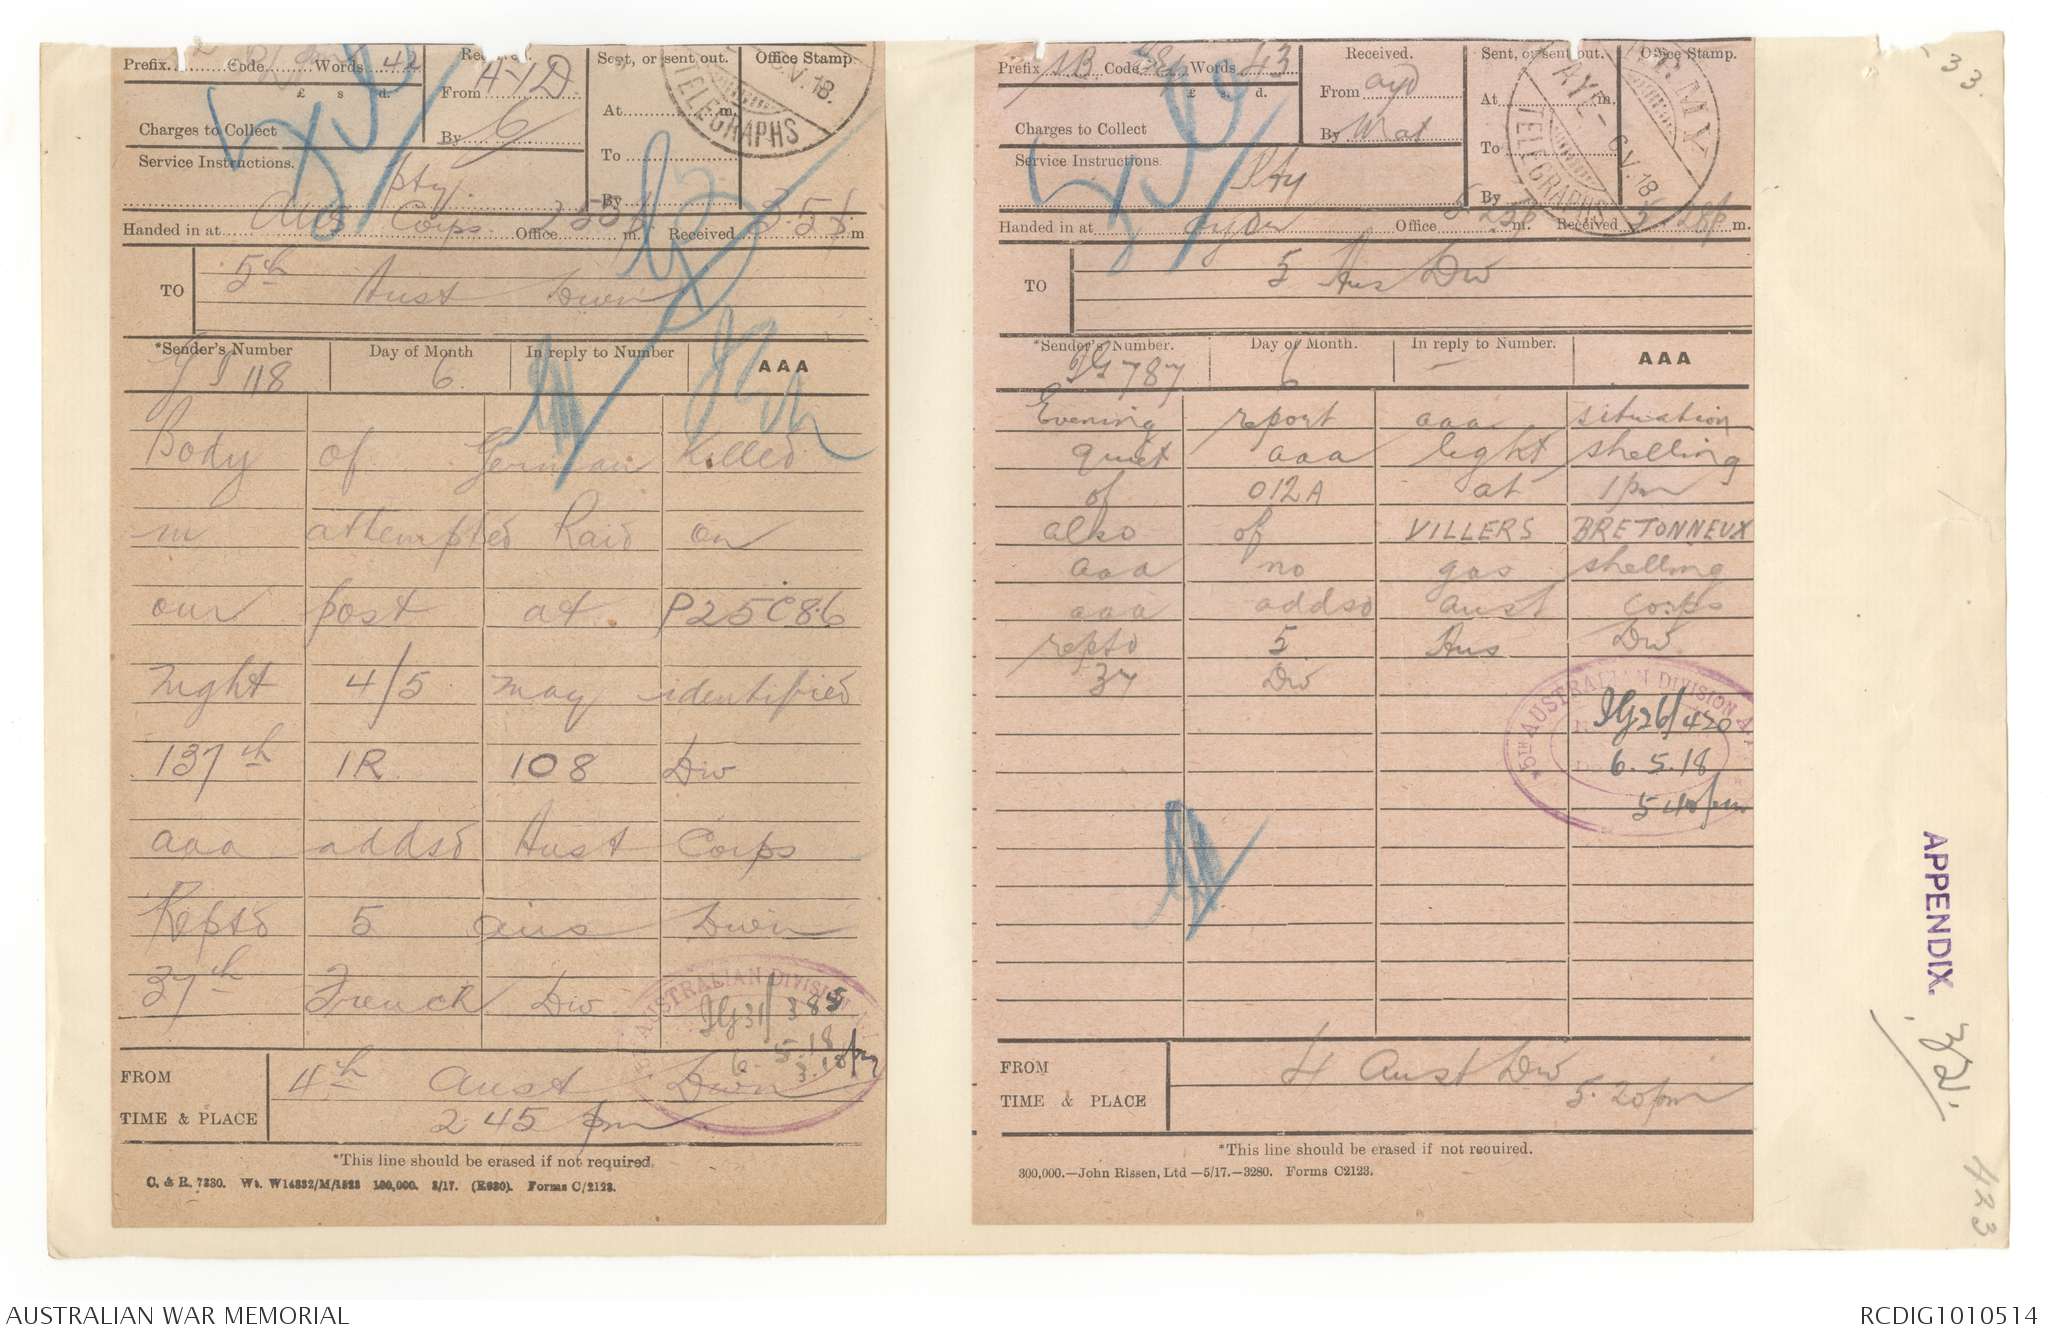 Prefix Code Words 42
From AYD
By
Charges to Collect
£ s d.
Service Instructions.
pty.
Sent, or sent out.
At m.
To
By
Office Stamp
TELEGRAPHS
Handed in at Aus Corps Office 253 p m. Received 3.5 p m
TO
5th Aust Divn
*Sender's Number
Day of Month
In reply to Number
AAA
118 6
Body of German killed
in attempted Raid on
our post at P25C8.6
night 4/5 may identified
137th IR 108 Div
aaa addsd Aust Corps
Repto 5 aus Divn
37th French Div
AUSTRALIAN DIVISION
IG31/385
6.5.18
3.10pm
FROM
TIME & PLACE
4th Aust Divn
2 45 pm
*This line should be erased if not required.
C. & R. 7330. Wt. W14832/M/1523 100,000. 3/17. (E930). Forms C/2123.
Prefix SB Code Words 43
Received.
From ayd
By
Charges to Collect
£ s. d.
Service Instructions.
Pty
Sent, or sent out.
At m.
To
By
Office Stamp.
ARMY
TELEGRAPHS
6.V.18.
Handed in at Office 5.25p m. Received 5.28p m.
TO
5 Aus Div
*Sender's Number.
Day of Month.
In reply to Number.
AAA
IG 787 6 —
Evening report aaa situation
quiet aaa light shelling
of O12A at 1pm
also of VILLERS BRETONNEUX
aaa no gas shelling
aaa addsd aust corps
reptd 5 Aus Div
37 Div
5TH AUSTRALIAN DIVISION
IG26/420
6.5.18
5 40pm
FROM
TIME & PLACE
4 Aust Div
5.20pm
*This line should be erased if not required.
300,000.—John Rissen, Ltd —5/17.—3280. Forms C2123.
33.
APPENDIX.
32.
423
AUSTRALIAN WAR MEMORIAL
RCDIG1010514